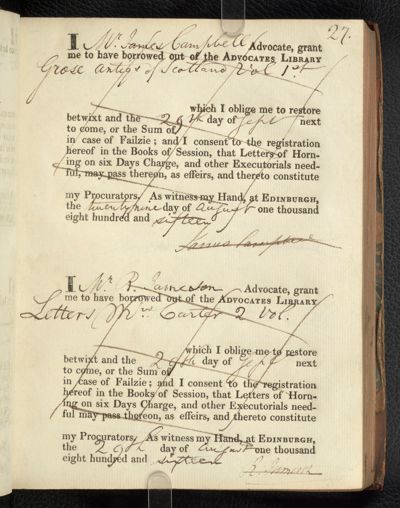 27.
I Mr. James Campbell Advocate, grant
me to have borrowed out of the ADVOCATES LIBRARY
Grose Antiqs of Scotland Vol 1st
which I oblige me to restore
betwixt and the 29th day of Sept next
to come, or the Sum of
in case of Failzie; and I consent to the registration
hereof in the Books of Session, that Letters of Horn-
ing on six Days Charge, and other Executorials need-
ful, may pass thereon, as effeirs, and thereto constitute
my Procurators. As witness my Hand, at EDINBURGH,
the twenty nine day of August one thousand
eight hundred and sixteen
James Campbell
I Mr. R. Jameson Advocate, grant
me to have borrowed out of the ADVOCATES LIBRARY
Letters, Mrs Carter 2 Vol.
which I oblige me to restore
betwixt and the 29th day of Sept next
to come, or the Sum of
in case of Failzie; and I consent to the registration
hereof in the Books of Session, that Letters of Horn-
ing on six Days Charge, and other Executorials need-
ful may pass thereon, as effeirs, and thereto constitute
my Procurators. As witness my Hand, at EDINBURGH,
the 29th day of August one thousand
eight hundred and sixteen
R. Jameson